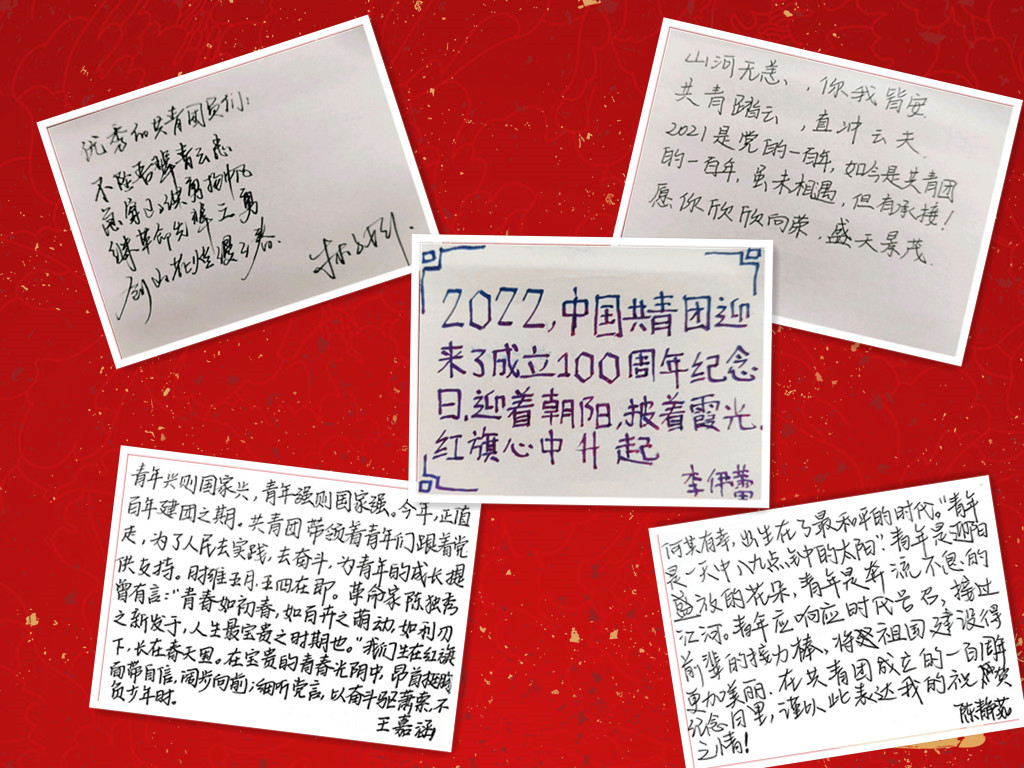 优秀的共青团员们:
不坠吾辈青云志
继革命先辈之勇
山河无恙,你我皆安.
共青踏云,直冲云天.
2021是党的一百年,如今是共青团
的一百年,虽未相遇,但有承接!
愿你欣欣向荣,盛天景茂.
2022,中国共青团迎
来了成立100周年纪念
日.迎着朝阳,披着霞光.
红旗心中升起
李伊蕾
青年兴则国家兴,青年强则国家强。今年,正值
百年建团之期。共青团带领着青年们跟着党
走,为了人民去实践,去奋斗,为青年的成长提
供支持。时维五月,五四在即。革命家陈独秀
曾有言:"青春如初春,如百卉之萌动,如利刃
之新发于,人生最宝贵之时期也。"我们生在红旗
下,长在春天里。在宝贵的青春光阴中,昂首挺胸
面带自信,阔步向前;细听党言,以奋斗驱萧索,不
负少年时。
王嘉涵
何其有幸,出生在了最和平的时代。"青年
是一天中八九点钟的太阳".青年是迎阳
盛放的花朵,青年是奔流不息的
江河。青年应响应时代号召,接过
前辈的接力棒,将祖国建设得
更加美丽.在共青团成立的一百周年
纪念日里,谨以此表达我的祝贺
之情!
陈静